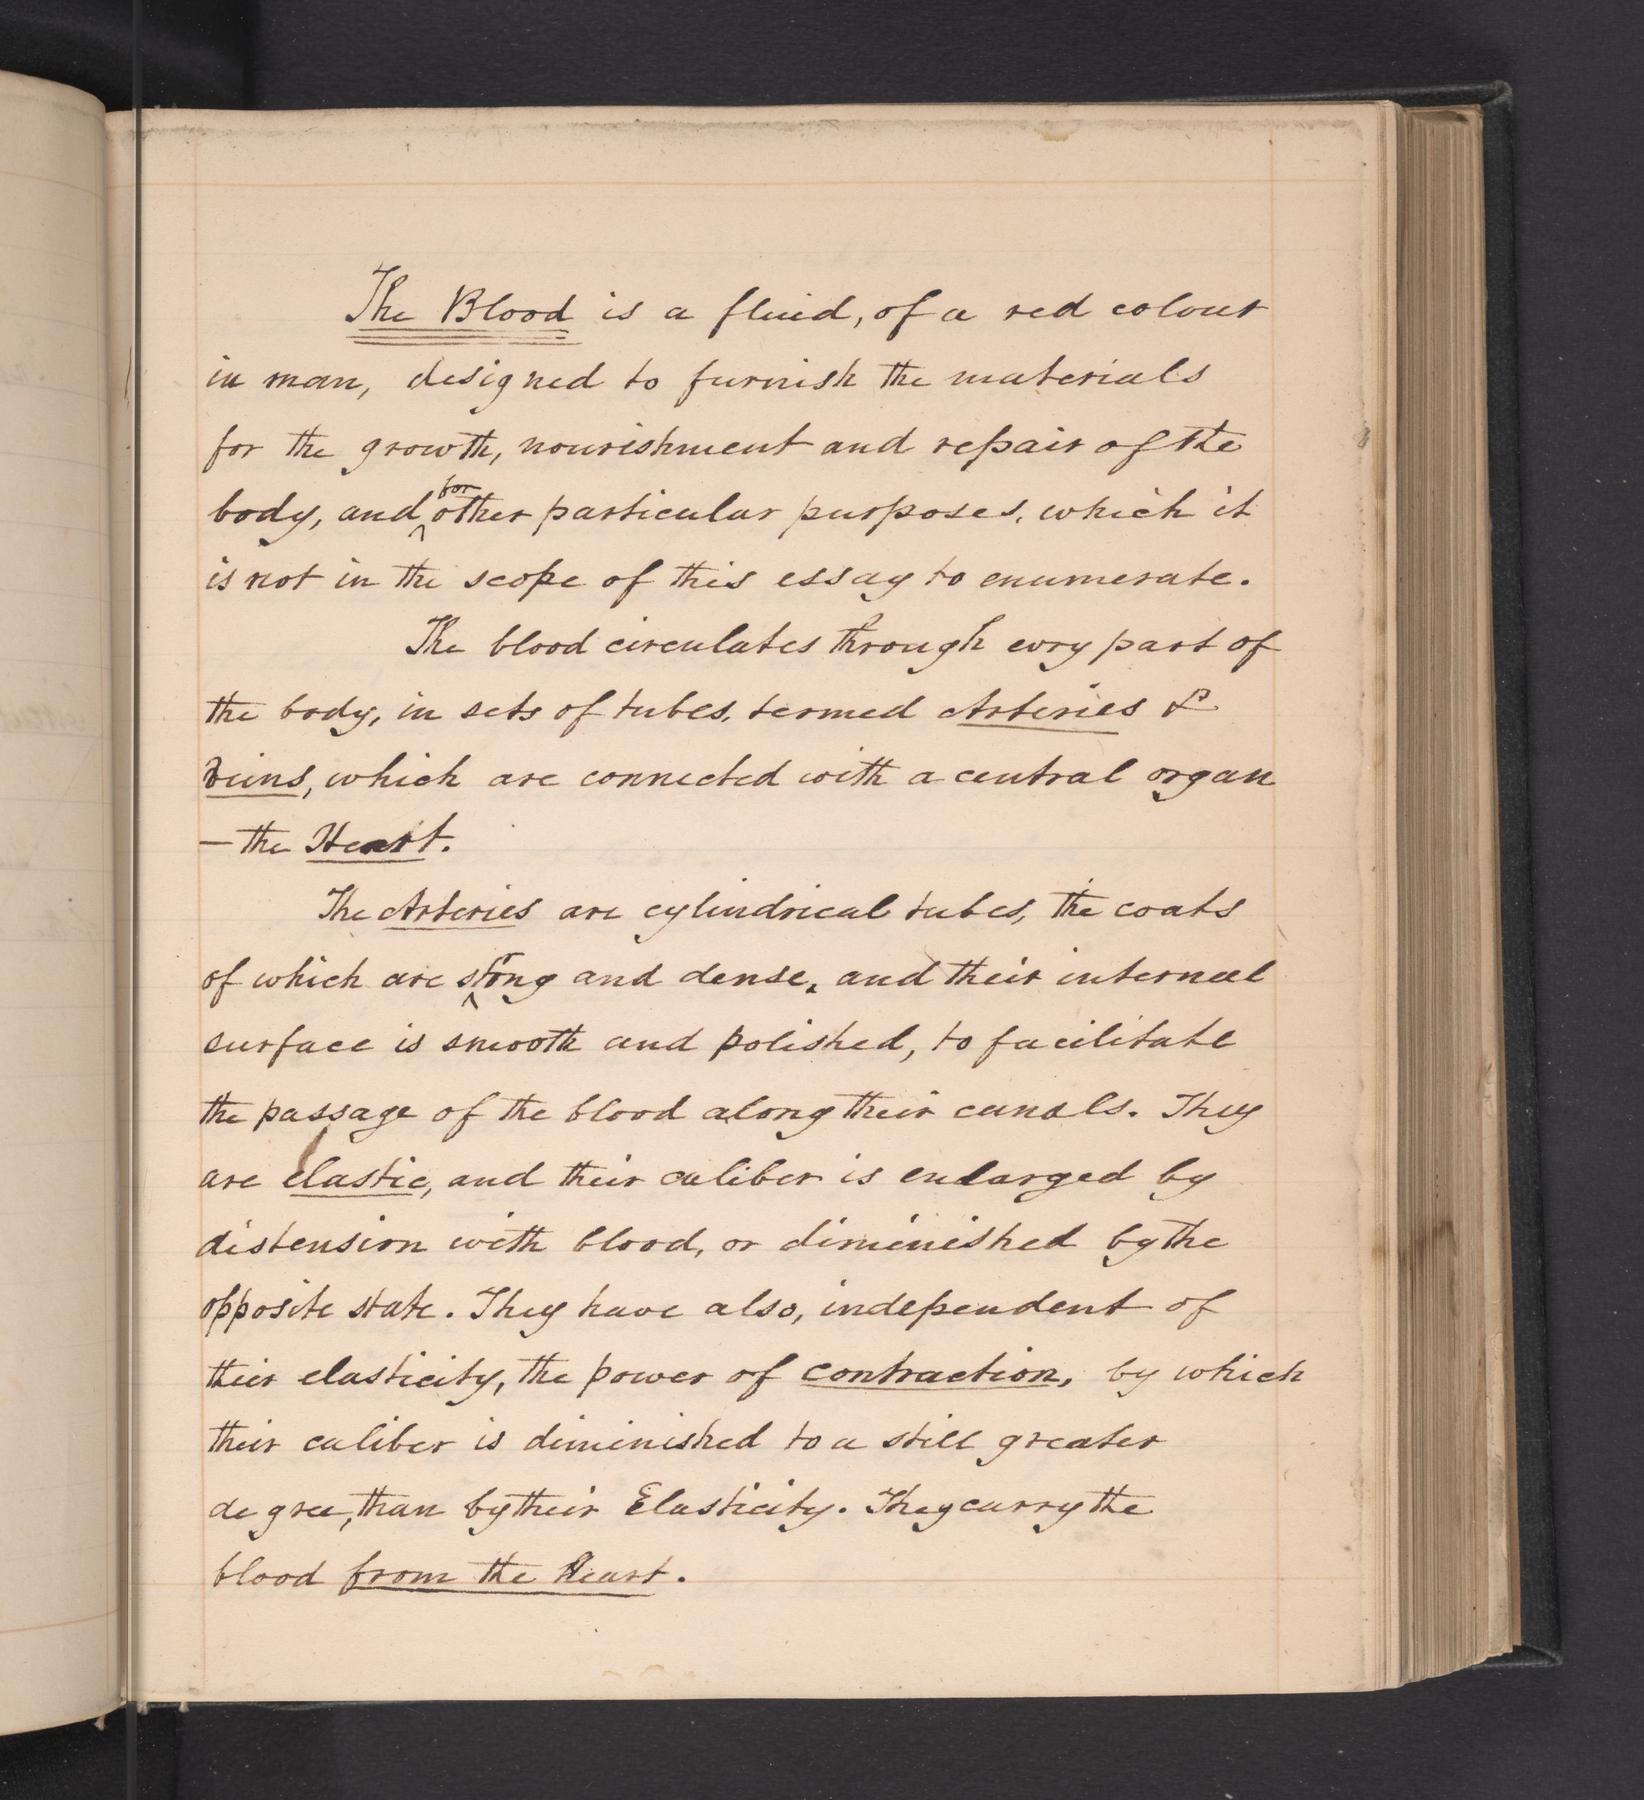 The Blood is a fluid, of a red colour
in man, designed to furnish the materials
for the growth, nourishment and repair of the
body, and for other particular purposes, which it
is not in the scope of this essay to enumerate.
The blood circulates through evry part of
the body, in sets of tubes, termed Arteries &
Veins, which are connected with a central organ
— the Heart.
The Arteries are cylindrical tubes, the coats
of which are strong and dense, and their internal
surface is smooth and polished, to facilitate
the passage of the blood along their canals. They
are elastic, and their caliber is enlarged by
distension with blood, or diminished by the
opposite state. They have also, independent of
their elasticity, the power of contraction, by which
their caliber is diminished to a still greater
degree, than by their Elasticity. They carry the
blood from the Heart.